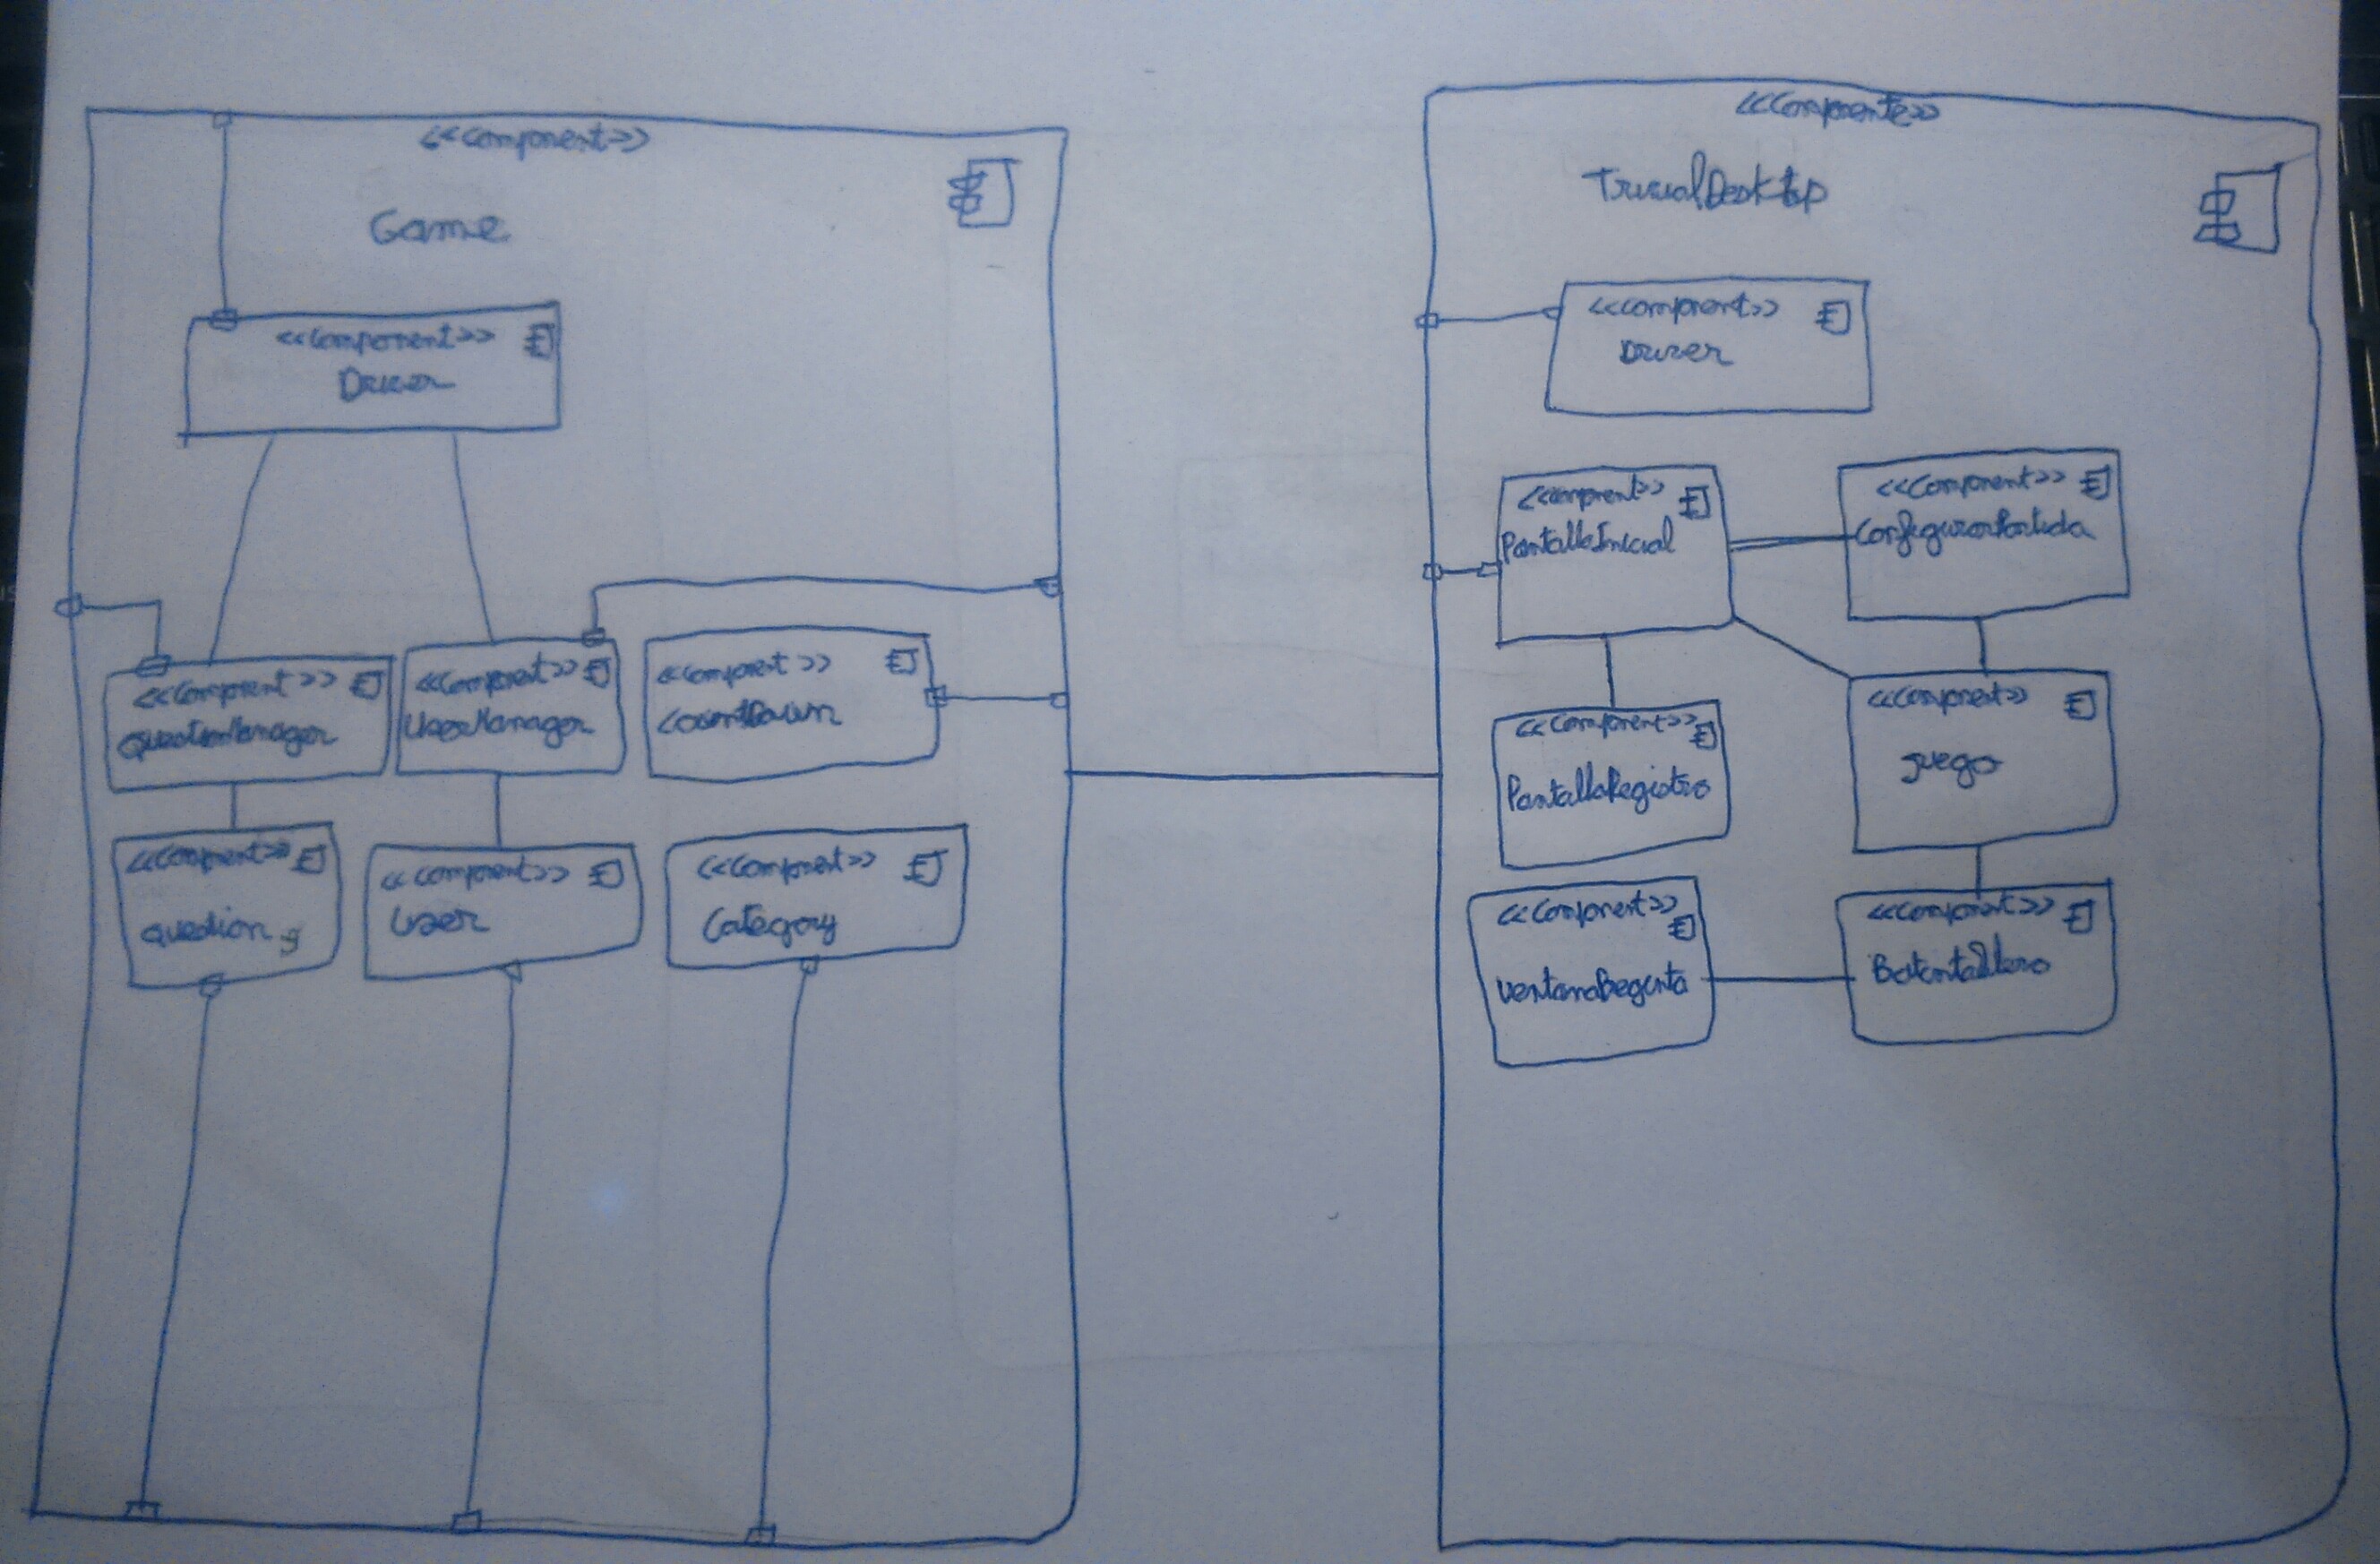 <<component>>
Game
<<component>>
Driver
<<component>>
QuestionManager
<<component>>
UserManager
<<component>>
CountDown
<<component>>
Question
<<component>>
User
<<component>>
Category
<<componente>>
TrivialDesktop
<<component>>
Driver
<<component>>
PantallaInicial
<<component>>
ConfigurarPartida
<<component>>
PantallaRegistro
<<component>>
Juego
<<component>>
<<component>>